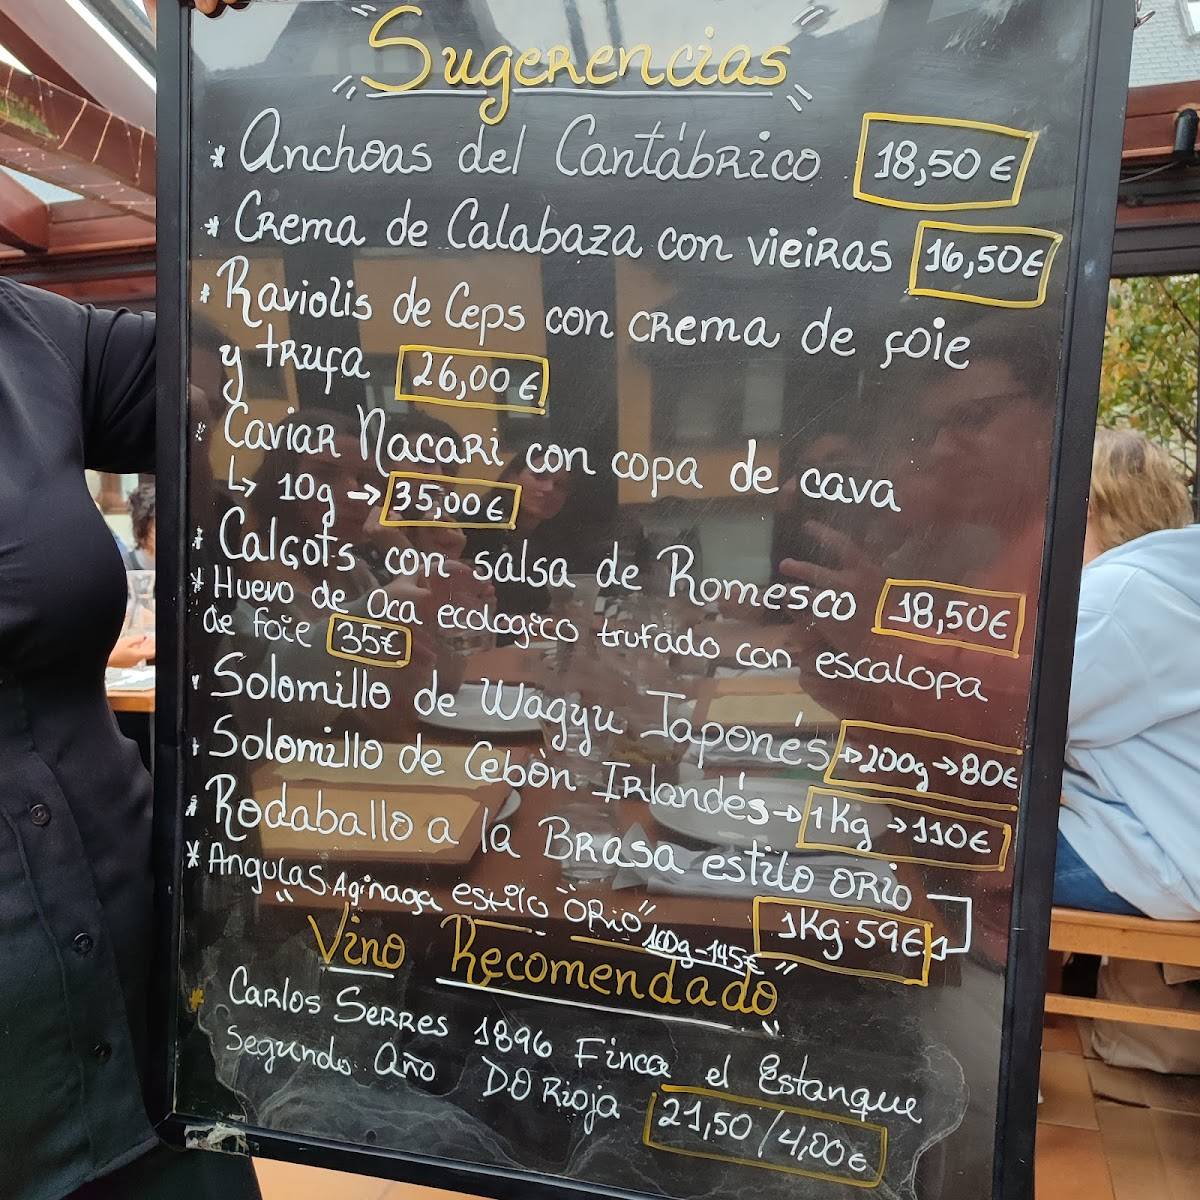 "Sugerencias"
* Anchoas del Cantábrico 18,50€
* Crema de Calabaza con vieiras 16,50€
* Raviolis de Ceps con crema de foie
y trufa 26,00€
* Caviar Nacari con copa de cava
↳ 10g → 35,00€
* Calçots con salsa de Romesco 18,50€
* Huevo de Oca ecologico trufado con escalopa
de foie 35€
* Solomillo de Wagyu Japonés → 200g → 80€
* Solomillo de Cebòn Irlandés → 1Kg → 110€
* Rodaballo a la Brasa estilo orio
1Kg 59€
* Angulas Aginaga estilo "Orio" 100g - 145€
"Vino Recomendado"
* Carlos Serres 1896 Finca el Estanque
Segundo Año D.O Rioja 21,50 / 4,00€